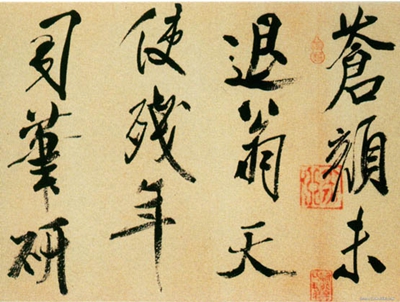 蒼顏未
退翁天
使殘年
司筆研